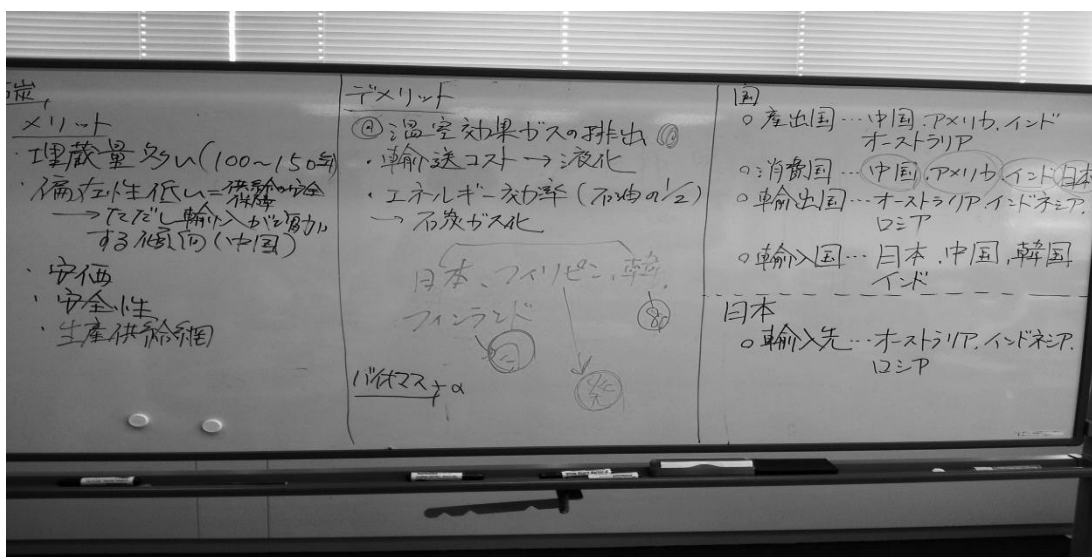 石炭
メリット
・埋蔵量多い(100~150年)
・偏在性低い=供給の安全
保障
→ただし輸入が
する傾向(中国)
・安価
・安全性
・生産供給網
デメリット
◎温室効果ガスの排出◎
・輸送コスト→液化
・エネルギー効率(石油の1/2)
→石炭ガス化
日本、フィリピン、韓
フィンランド
バイオマス+α
国
○産出国…中国、アメリカ、インド
オーストラリア
○消費国…中国、アメリカ、インド、日本
○輸出国…オーストラリア、インドネシア
ロシア
○輸入国…日本、中国、韓国
インド
日本
○輸入先…オーストラリア、インドネシア、
ロシア